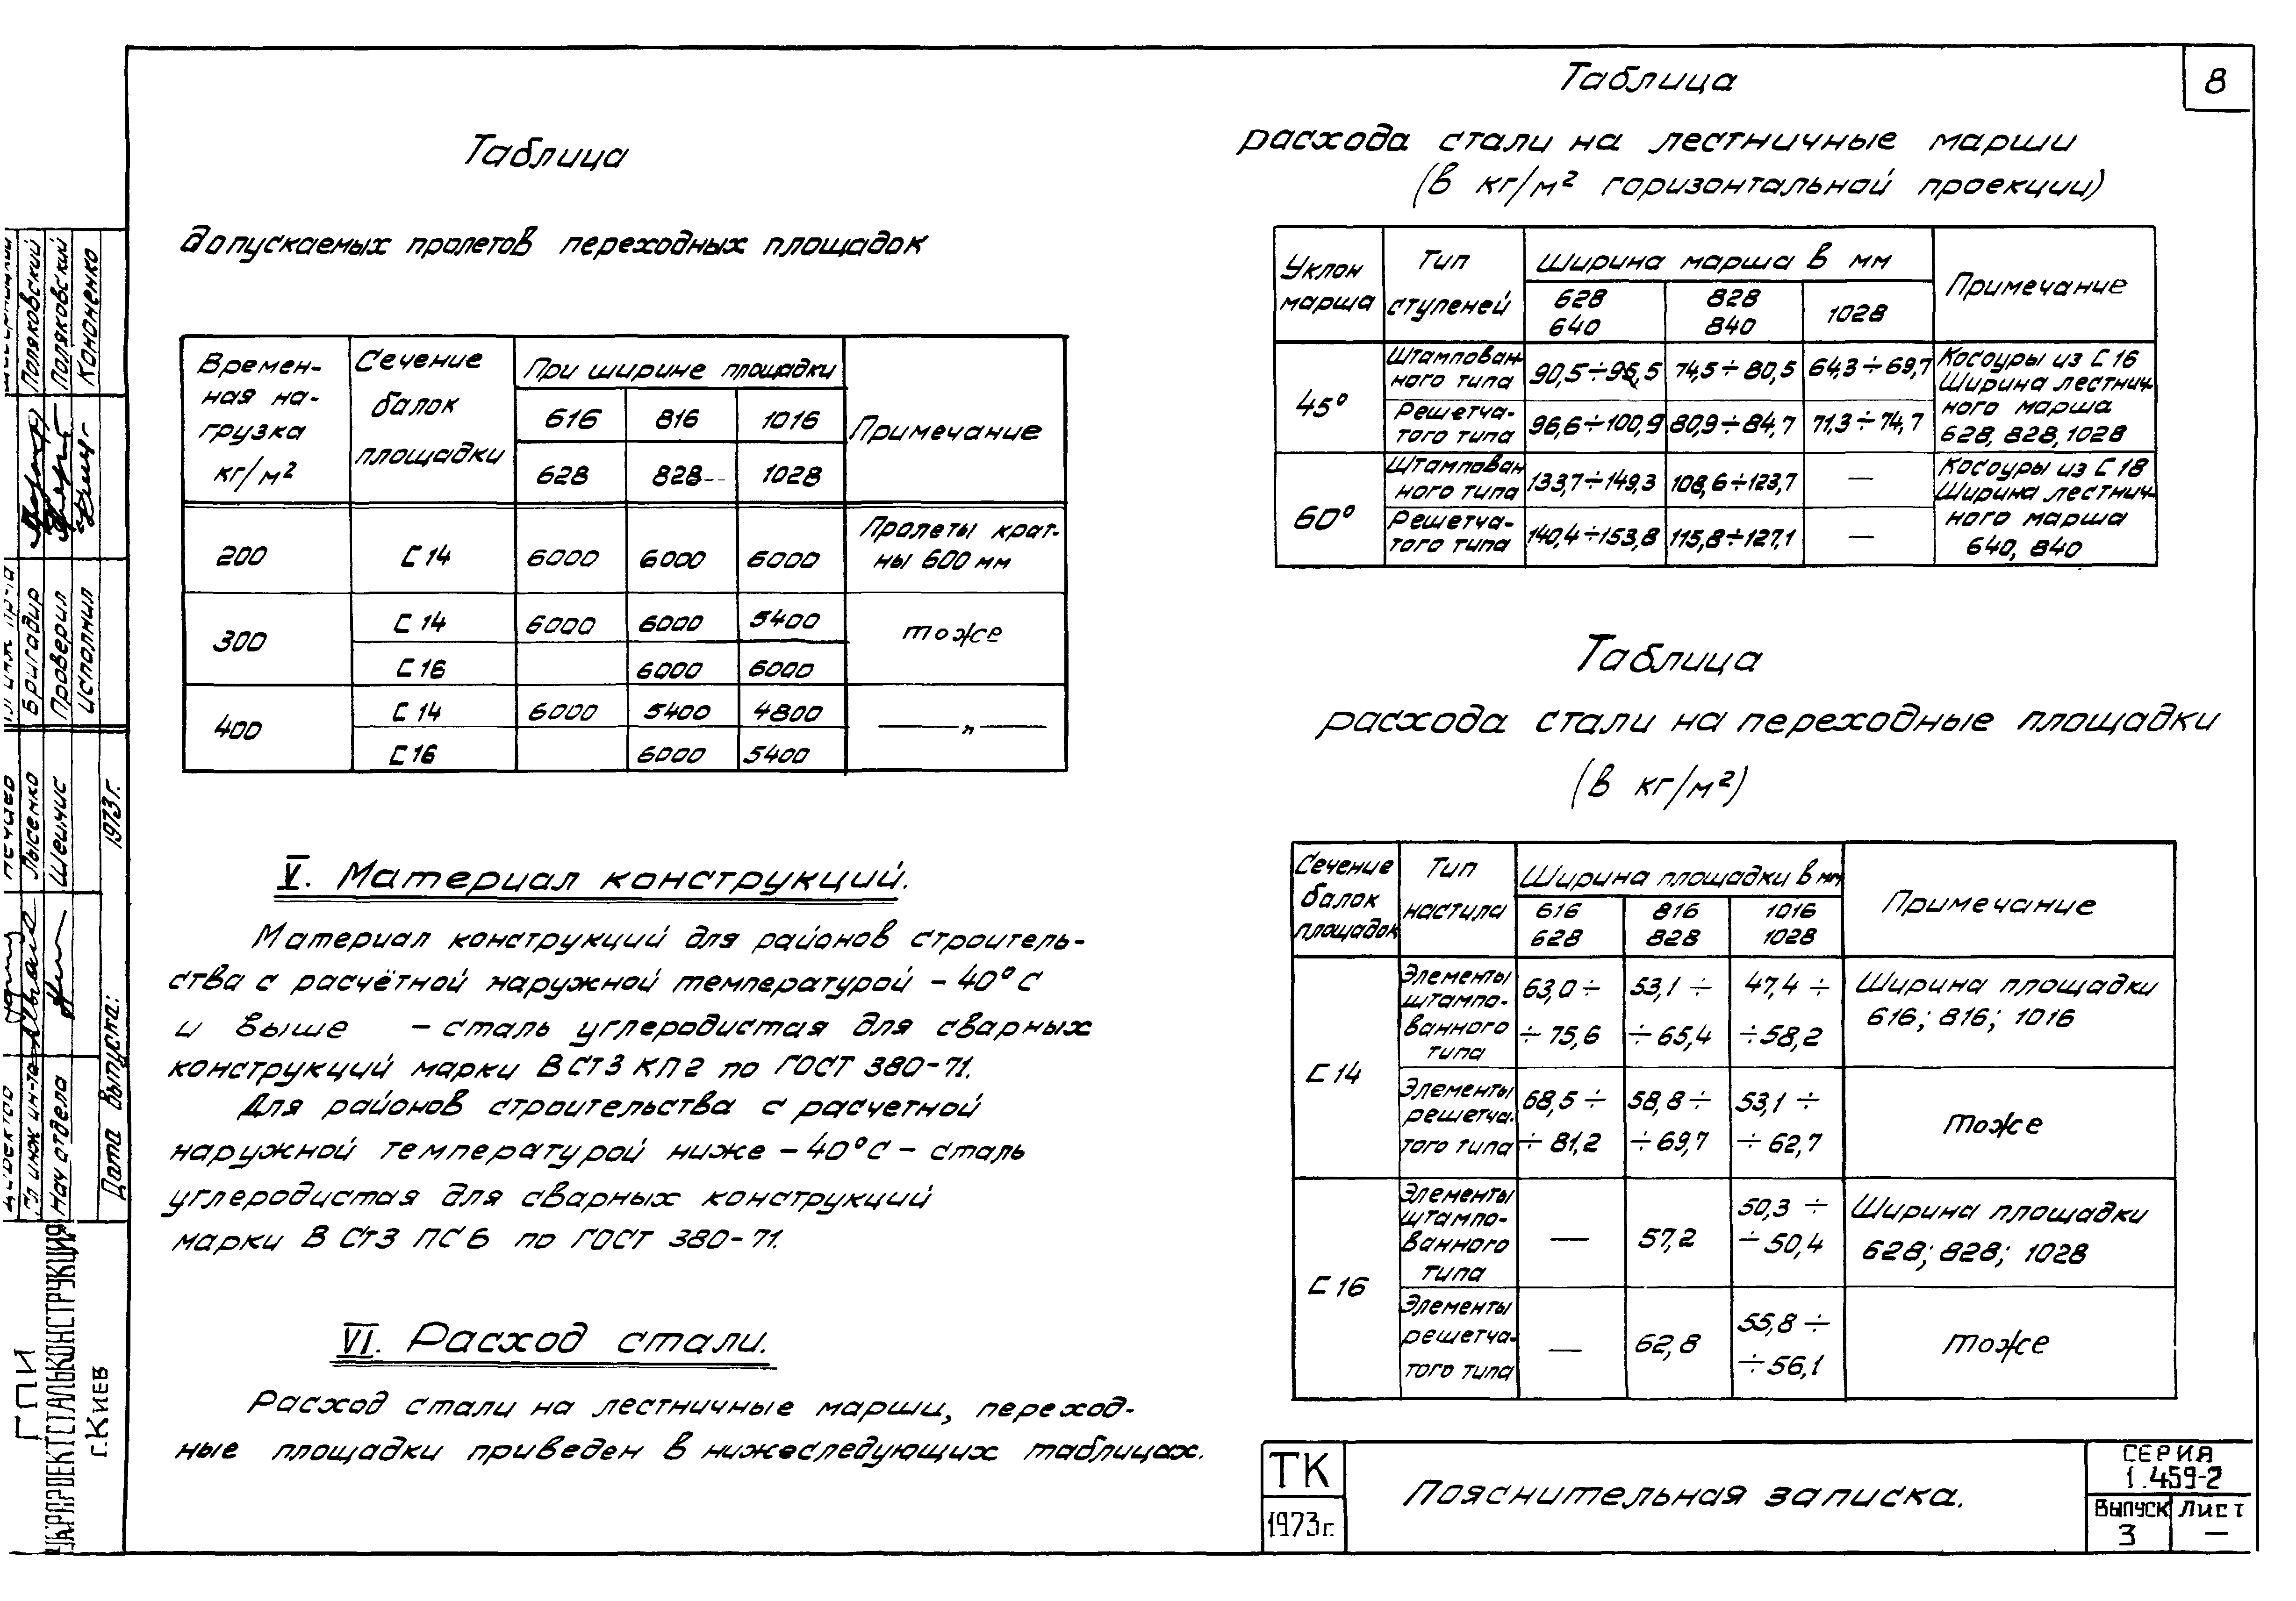 8
Таблица
допускаемых пролетов переходных площадок
Времен-
ная на-
грузка
кг/м²
Сечение
балок
площадки
При ширине площадки
616 816 1016
628 828 1028
Примечание
200 С 14 6000 6000 6000
Пролеты крат-
ны 600 мм
300 С 14 6000 6000 5400
тоже
С 16 6000 6000
400 С 14 6000 5400 4800
— „ —
С 16 6000 5400
V. Материал конструкций.
Материал конструкций для районов строитель-
ства с расчётной наружной температурой – 40° С
и выше – сталь углеродистая для сварных
конструкций марки В Ст 3 КП 2 по ГОСТ 380-71.
Для районов строительства с расчетной
наружной температурой ниже – 40° С – сталь
углеродистая для сварных конструкций
марки В Ст3 ПС 6 по ГОСТ 380-71.
VI. Расход стали.
Расход стали на лестничные марши, переход-
ные площадки приведен в нижеследующих таблицах.
Таблица
расхода стали на лестничные марши
(в кг/м² горизонтальной проекции)
Уклон
марша
Тип
ступеней
Ширина марша в мм
628
640
828
840
1028
Примечание
45°
Штампован-
ного типа
90,5÷96,5 74,5÷80,5 64,3÷69,7
Решетча-
того типа
96,6÷100,9 80,9÷84,7 71,3÷74,7
Косоуры из С 16
Ширина лестнич-
ного марша
628, 828, 1028
60°
Штампован
ного типа
133,7÷149,3 108,6÷123,7 —
Решетча-
того типа
140,4÷153,8 115,8÷127,1 —
Косоуры из С 18
Ширина лестнич-
ного марша
640, 840
Таблица
расхода стали на переходные площадки
(в кг/м²)
Сечение
балок
площадок
Тип
настила
Ширина площадки в мм
616
628
816
828
1016
1028
Примечание
С 14
Элементы
штампо-
ванного
типа
63,0 ÷
÷ 75,6
53,1 ÷
÷ 65,4
47,4 ÷
÷ 58,2
Ширина площадки
616; 816; 1016
Элементы
решетча-
того типа
68,5 ÷
÷ 81,2
58,8 ÷
÷ 69,7
53,1 ÷
÷ 62,7
тоже
С 16
Элементы
штампо-
ванного
типа
—
57,2
50,3 ÷
÷ 50,4
Ширина площадки
628; 828; 1028
Элементы
решетча-
того типа
—
62,8
55,8 ÷
÷ 56,1
тоже
ТК
1973г.
Пояснительная записка.
СЕРИЯ
1.459-2
Выпуск
3
Лист
—
Поляковский
Поляковский
Кононенко
Бригадир
Проверил
Исполнил
Лысенко
Шейнис
1973г.
Гл инж ин-та
Нач отдела
Дата выпуска:
ГПИ
УКРПРОЕКТСТАЛЬКОНСТРУКЦИЯ
г. Киев